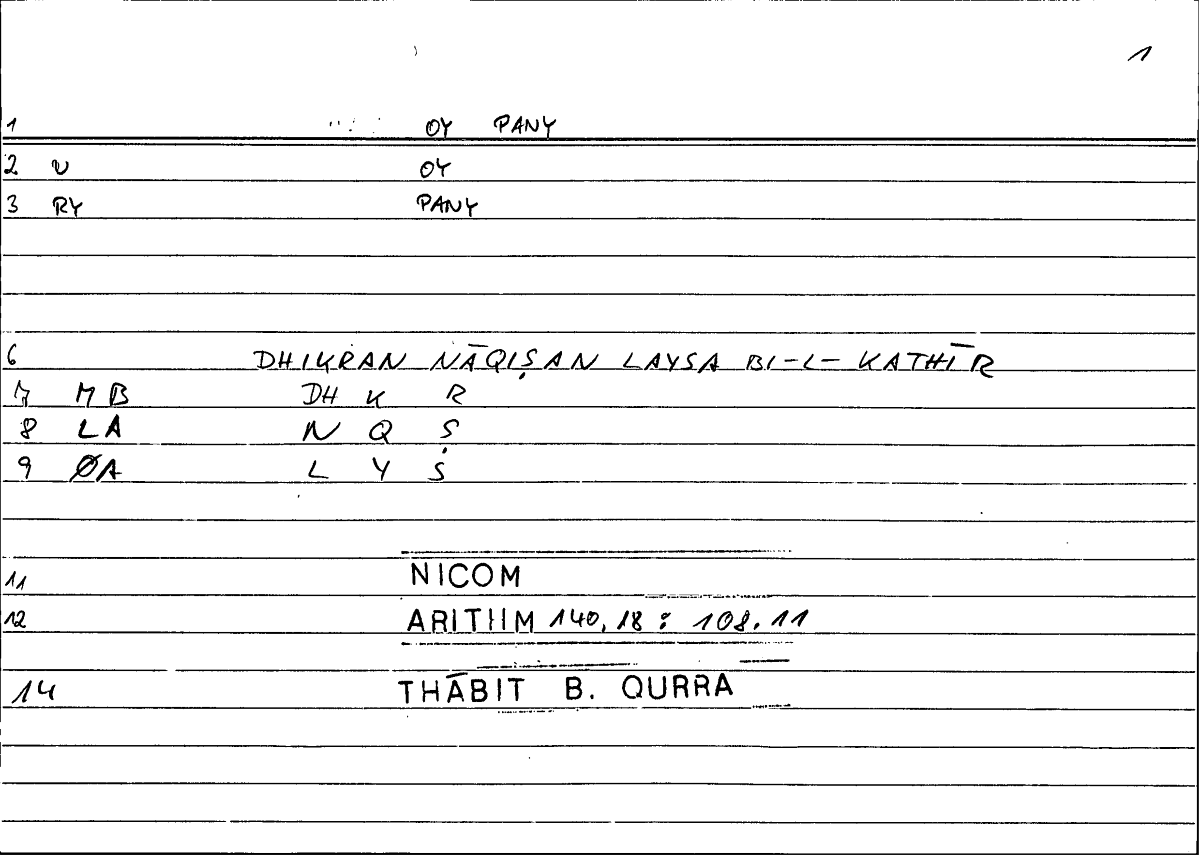 1
1 OY PANY
2 V OY
3 RY PANY
6 DHIKRAN NĀQIṢAN LAYSA BI-L-KATHĪR
7 MB DH K R
8 LA N Q Ṣ
9 ØA L Y Ṡ
11 NICOM
12 ARITHM 140,18 : 108.11
14 THĀBIT B. QURRA